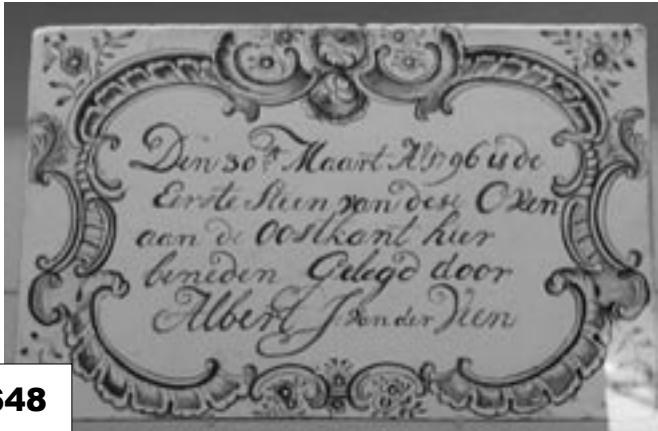 Den 30ste Maart A 1796 is de
Eerste Steen van dese Oven
aan de Oostkant hier
beneden Gelegd door
Albert J. van der Veen
648